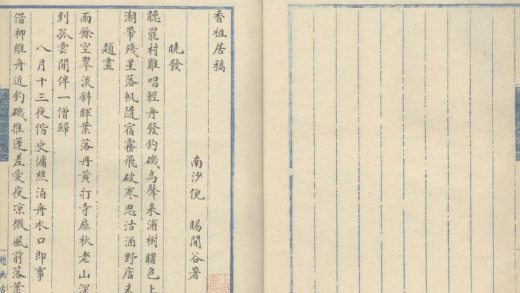 香祖居稿
南沙倪　賜閒谷著
曉發
聽罷村雞唱輕舟發釣磯烏聲来浦樹曙色上
潮帶殘星落帆隨宿霧飛破寒思沽酒野店未
題畫
雨餘空翠淡斜暉葉落丹黄打寺扉秋老山深
到孤雲閒伴一僧歸
八月十三夜偕史漁樵泊舟水口即事
借柳維舟近釣磯推蓬差愛夜凉微風前落葉